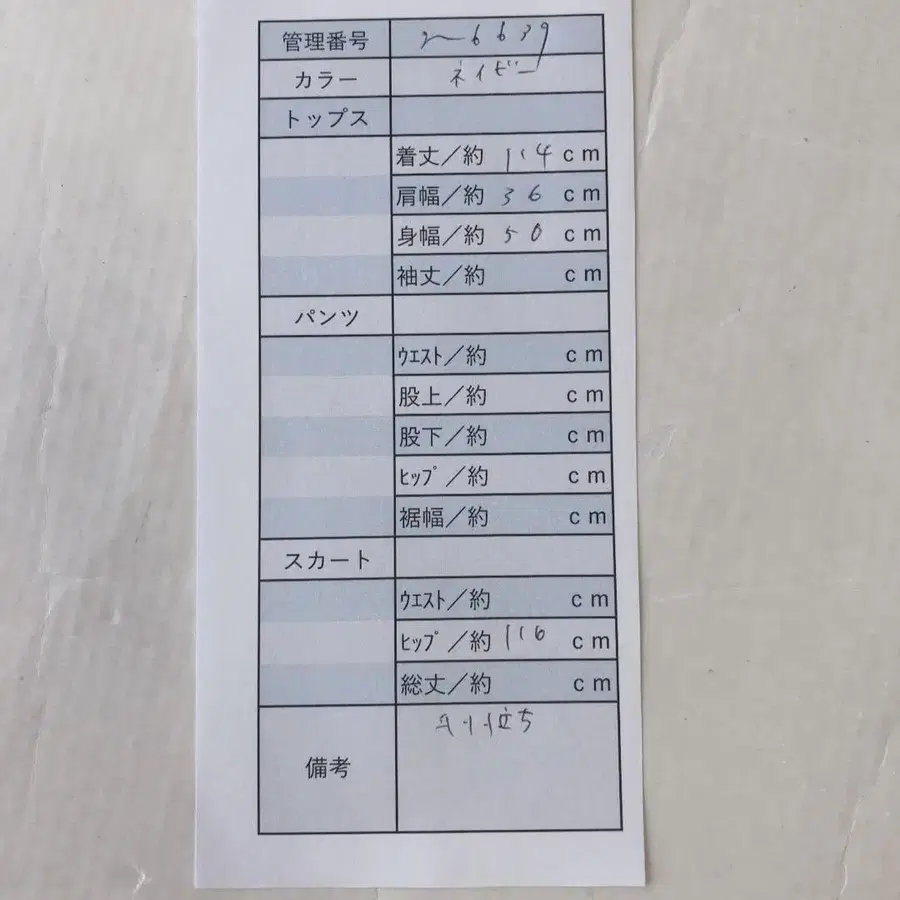 管理番号 2~6639
カラー ネイビー
トップス
着丈／約 114 cm
肩幅／約 36 cm
身幅／約 50 cm
袖丈／約 cm
パンツ
ｳｴｽﾄ／約 cm
股上／約 cm
股下／約 cm
ﾋｯﾌﾟ／約 cm
裾幅／約 cm
スカート
ｳｴｽﾄ／約 cm
ﾋｯﾌﾟ／約 116 cm
総丈／約 cm
備考